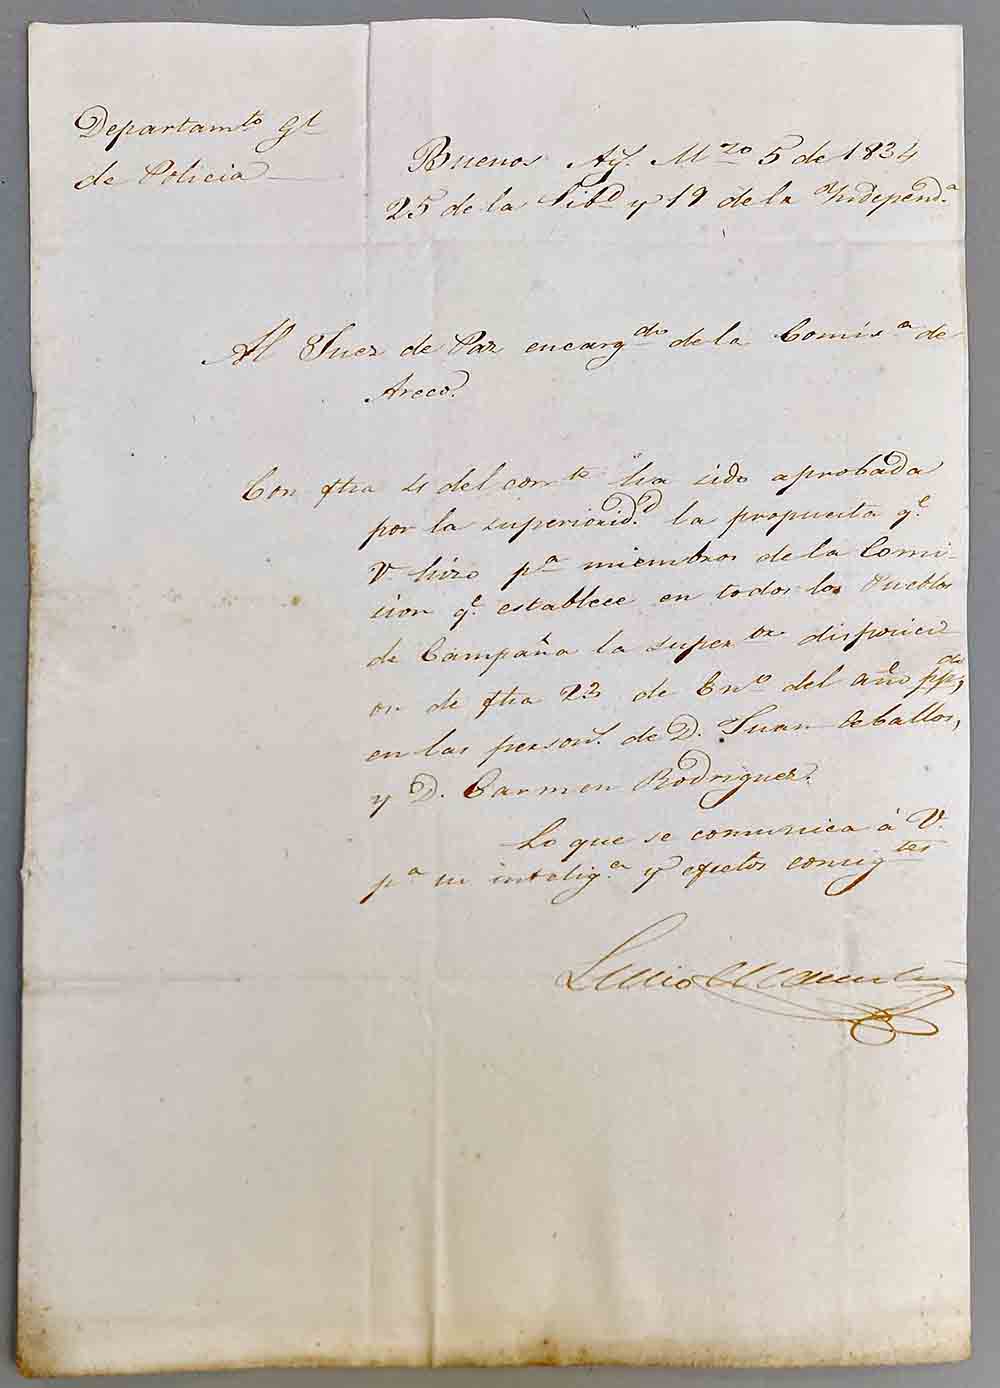 Departamto Gl
de Policia
Buenos Ay.s Mzo 5 de 1834
25 de la Libd y 19 de la Independ.a
Al Juez de Paz encargdo de la Comis.a de
Areco.
Con fha 4 del corrte ha sido aprobada
por la superioridd. la propuesta q.e
V hizo pa miembros de la Comi-
sion q.e establece en todos los Pueblos
de Campaña la superor disposici
on de fha 23 de Eno del año ppdo,
en las person.s de D. Juan Ceballos,
y D. Carmen Rodriguez.
Lo que se comunica á V.
pa su intelig.a y efectos consigtes
Lucio Mansilla